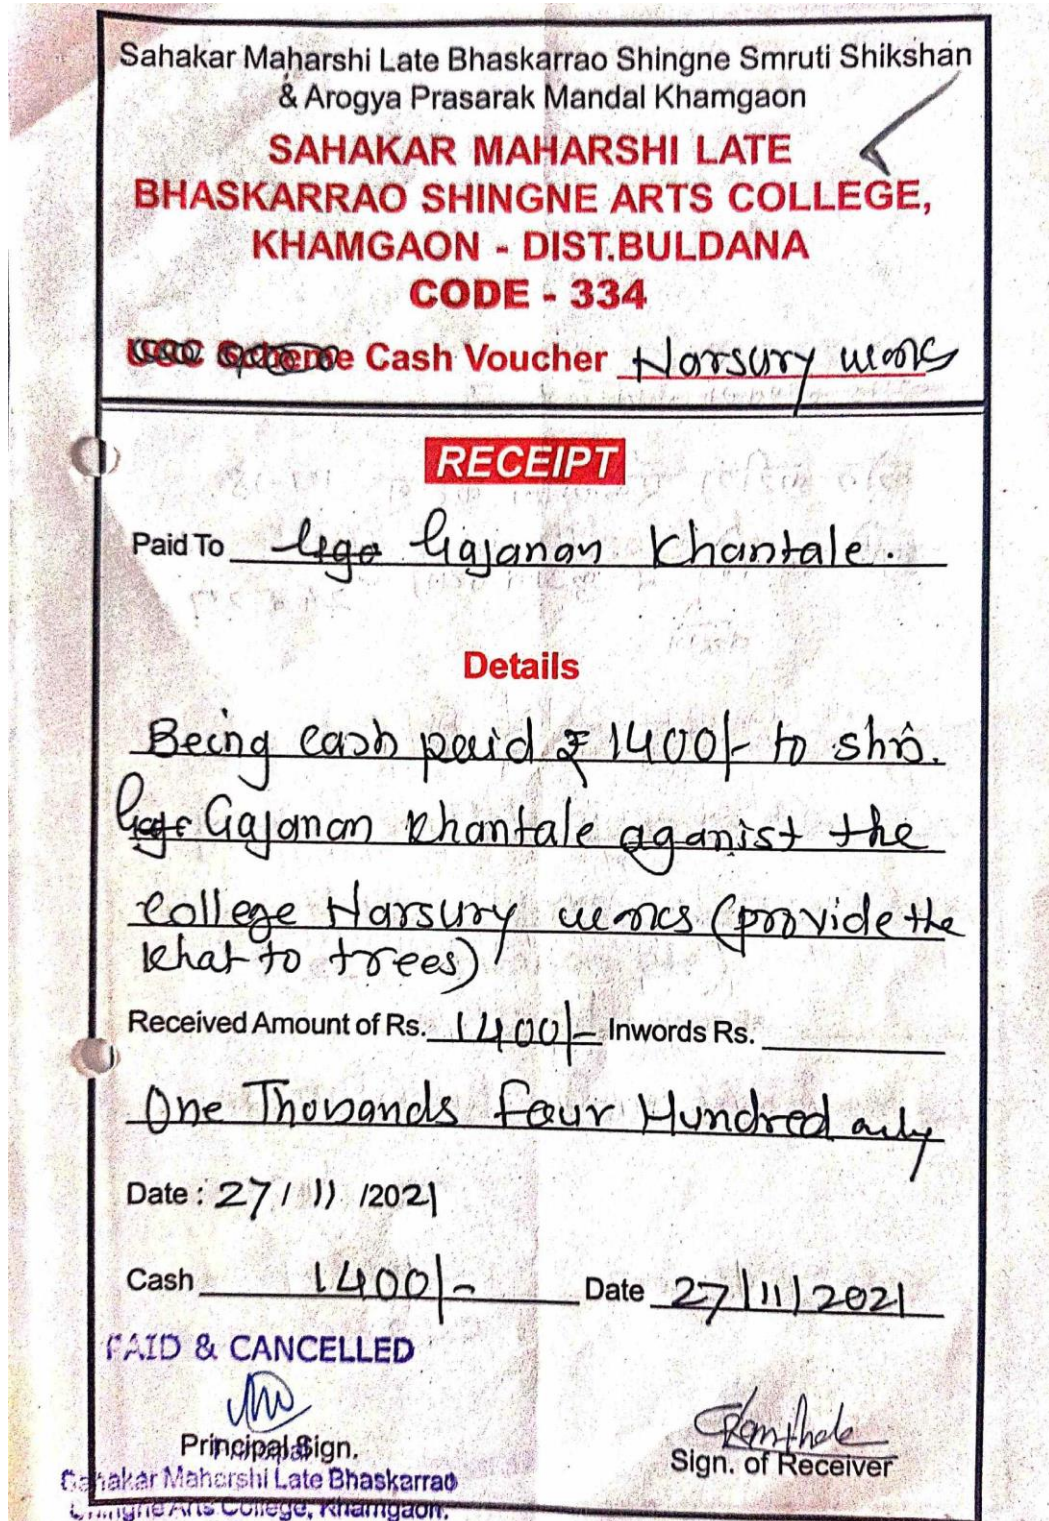 Sahakar Maharshi Late Bhaskarrao Shingne Smruti Shikshan
& Arogya Prasarak Mandal Khamgaon
SAHAKAR MAHARSHI LATE
BHASKARRAO SHINGNE ARTS COLLEGE,
KHAMGAON - DIST.BULDANA
CODE - 334
Scheme Cash Voucher Narsury works
RECEIPT
Paid To Gajanan Khantale.
Details
Being cash paid ₹ 1400/- to shri.
Gajanan Khantale aganist the
college Narsury works (provide the
khat to trees)
Received Amount of Rs. 1400/- Inwords Rs.
One Thousands Four Hundred only
Date : 27 / 11 /2021
Cash 1400/- Date 27/11/2021
PAID & CANCELLED
Principal Sign.
Sign. of Receiver
Sahakar Maharshi Late Bhaskarrao
Shingne Arts College, Khamgaon.